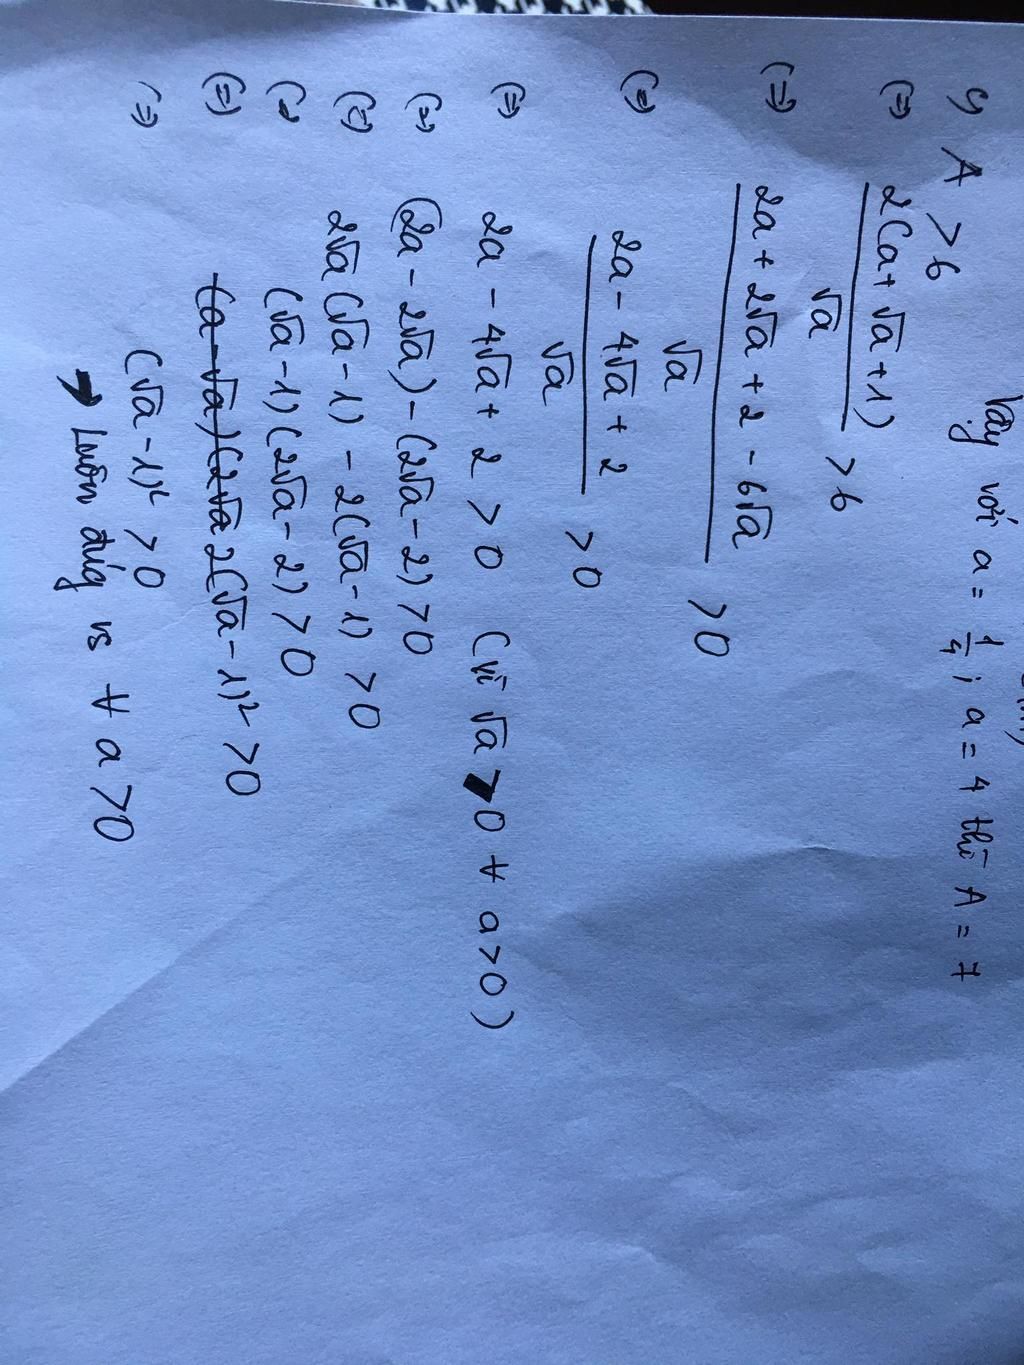 Vậy với a = 1/4 ; a = 4 thì A = 7
A > 6
(=) 2(a + √a + 1) / √a > 6
(=) (2a + 2√a + 2 - 6√a) / √a > 0
(=) (2a - 4√a + 2) / √a > 0
(=) 2a - 4√a + 2 > 0 (vì √a > 0 ∀ a > 0)
(=) (2a - 2√a) - (2√a - 2) > 0
(=) 2√a (√a - 1) - 2(√a - 1) > 0
(=) (√a - 1)(2√a - 2) > 0
(=) (a - √a)(2√a 2(√a - 1)² > 0
(=) (√a - 1)² > 0
→ Luôn đúng vs ∀ a > 0